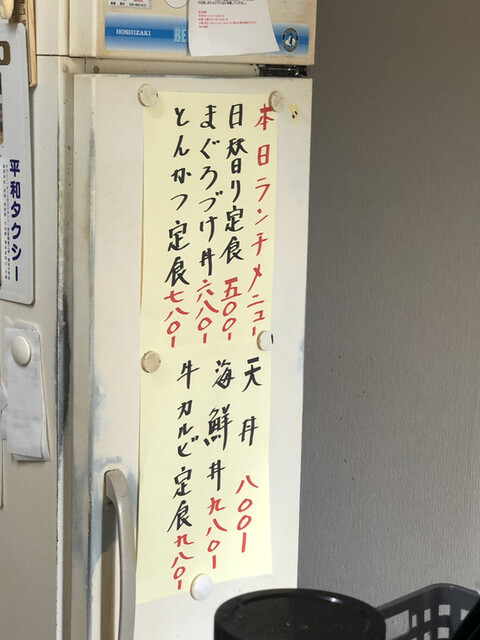 HOSHIZAKI
本日ランチメニュー
日替り定食 五〇〇ー
まぐろづけ丼 六八〇ー
とんかつ定食 七八〇ー
天丼 八〇〇ー
海鮮丼 九八〇ー
牛カルビ定食 九八〇ー
平和タクシー